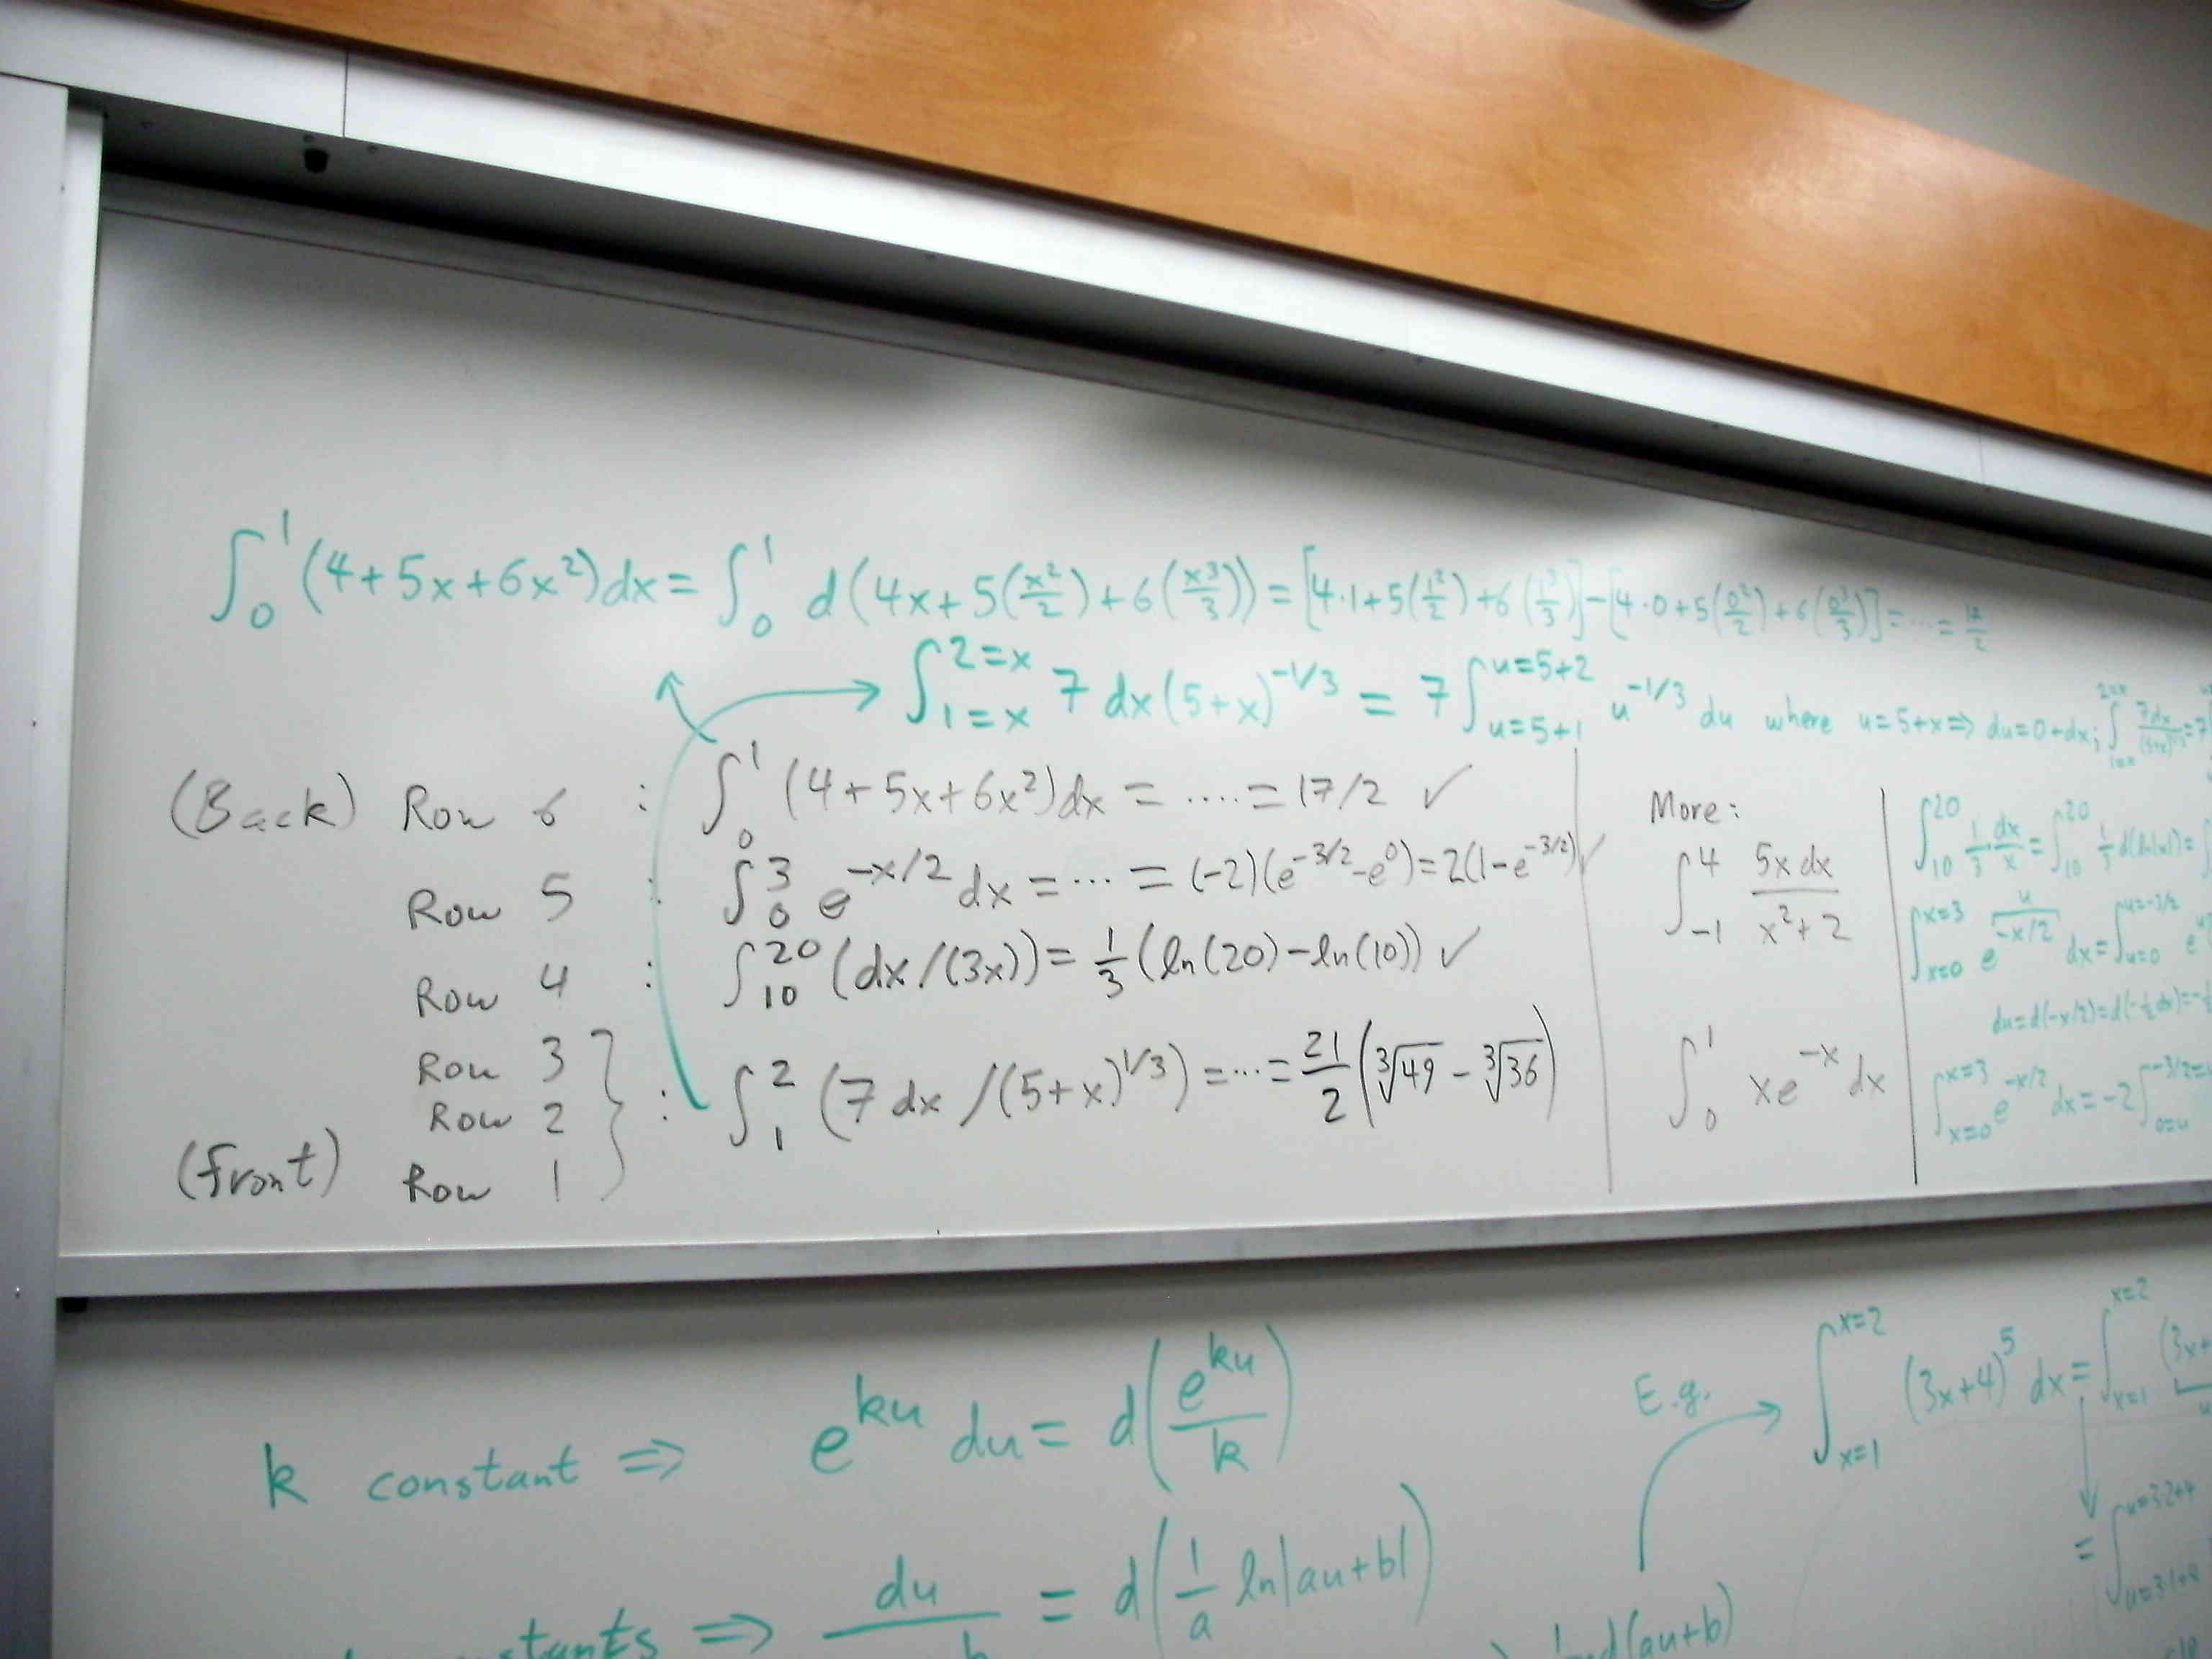 ∫₀¹(4+5x+6x²)dx = ∫₀¹ d(4x+5(x²/2)+6(x³/3)) = [4·1+5(1²/2)+6(1³/3)]-[4·0+5(0²/2)+6(0³/3)] = ... =
∫_{1=x}^{2=x} 7 dx(5+x)^{-1/3} = 7∫_{u=5+1}^{u=5+2} u^{-1/3} du where u=5+x ⇒ du=0+dx;
(Back) Row 6 : ∫₀¹ (4+5x+6x²)dx = .... = 17/2 ✓
Row 5 : ∫₀³ e^{-x/2} dx = ... = (-2)(e^{-3/2}-e⁰)=2(1-e^{-3/2}) ✓
Row 4 : ∫₁₀²⁰ (dx/(3x)) = 1/3 (ln(20)-ln(10)) ✓
Row 3
Row 2 : ∫₁² (7 dx /(5+x)^{1/3}) = ... = 21/2 (∛49 - ∛36)
(Front) Row 1
More:
∫₋₁⁴ 5x dx / x²+2
∫₀¹ xe^{-x} dx
∫₁₀²⁰ 1/3 dx/x = ∫₁₀²⁰ 1/3 d(ln|x|) =
∫_{x=0}^{x=3} e^{-x/2} dx = ∫_{u=0}^{u=-3/2} e^u
du=d(-x/2)=
∫_{x=0}^{x=3} e^{-x/2} dx = -2∫_{0=u}^{-3/2=u}
k constant ⇒ e^{ku} du = d(e^{ku}/k)
E.g. ∫_{x=1}^{x=2} (3x+4)⁵ dx = ∫_{x=1}^{x=2} (3x+
= ∫_{u=3·1+4}^{u=3·2+4}
⇒ du = d(1/a ln|au+b|)
d(au+b)